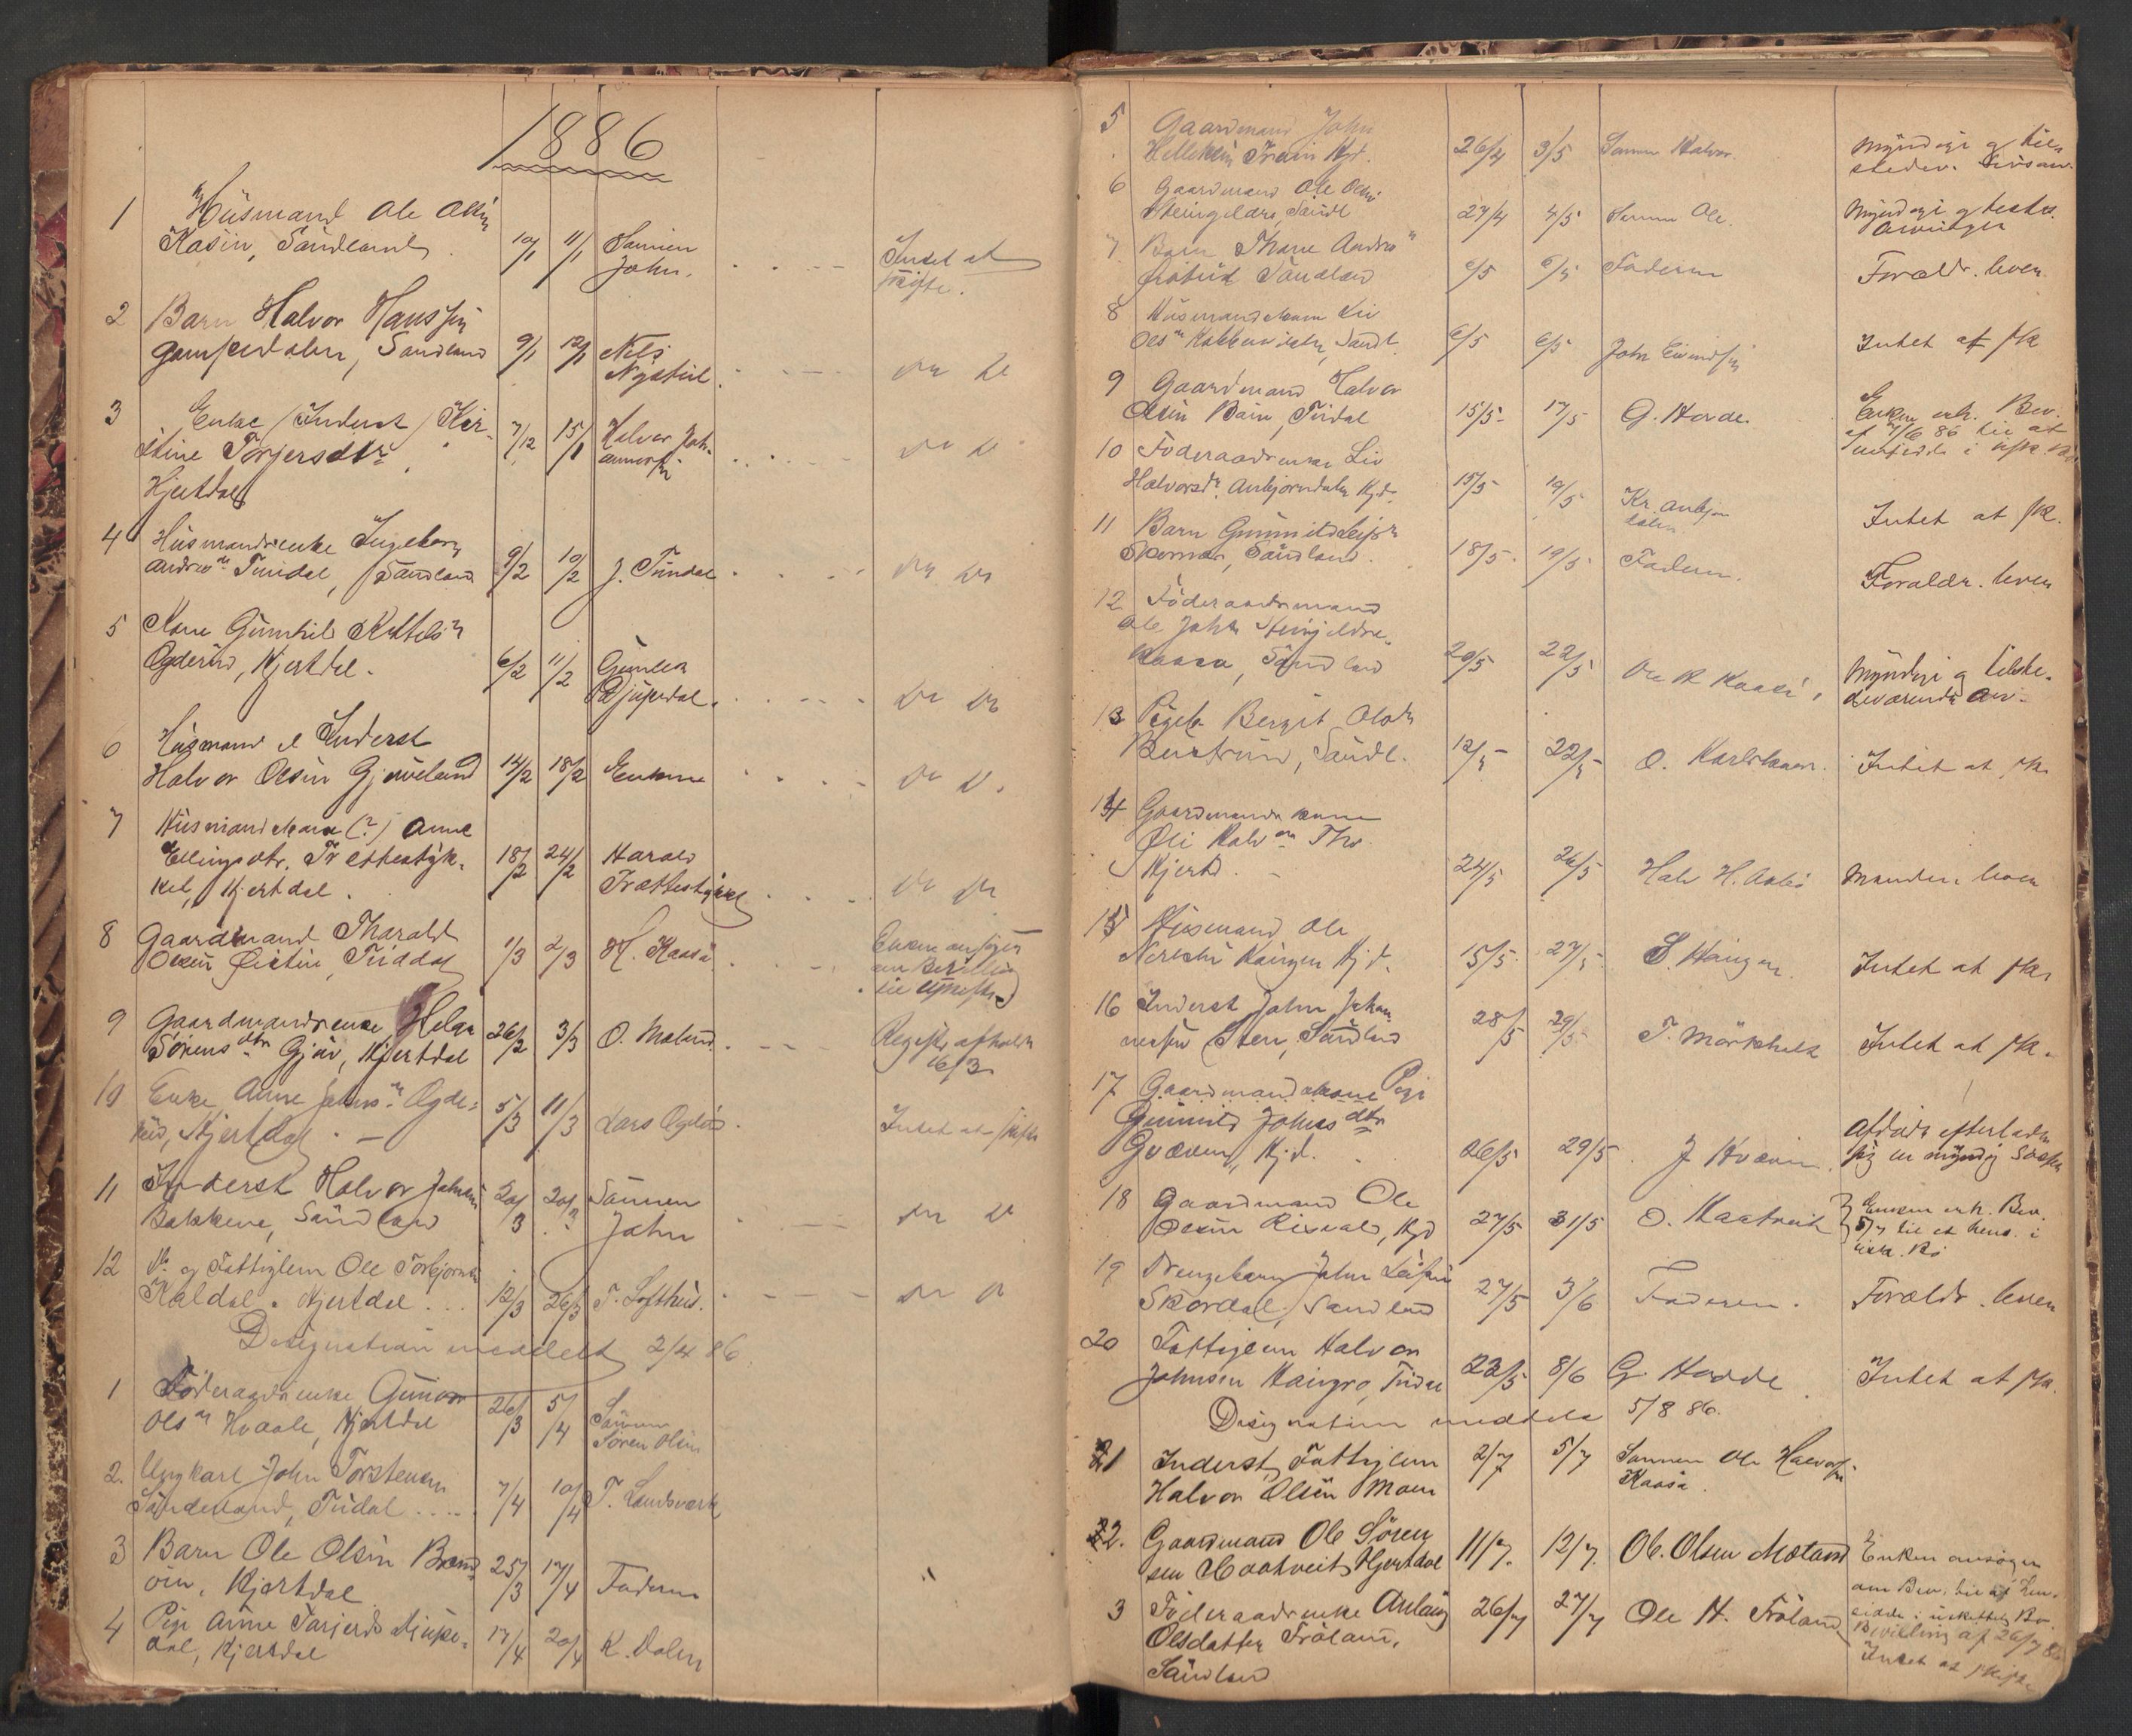 1886
1 Husmand Ole Olsen
Kasin, Sandland. 10/1 11/1 Sønnen John. Intet at skifte.
2 Barn Halvor Hanssen
Gampedalen, Sandland 9/1 12/1 Nils Nystul. do do
3 Enke (Inderst) Kir-
stine Torjersdtr 7/12 15/1 Halvor Johannessen do do
Hjertdal
4 Husmandsenke Ingeborg
Andrsdr Tuudal, Sandland 9/2 10/2 J. Tuudal do do
5 Kone Gunhild Kittelsdr
Ogderud, Hjertdal. 6/2 11/2 Gunleik Djupedal. do do
6 Husmand & Inderst
Halvor Olsen Gjuveland 14/2 18/2 Enken do do.
7 Husmandskone (?) Anne
Ellingsdtr. Trættestyk-
kel, Hjertdal. 18/2 24/2 Harald Trættestykkel do do
8 Gaardmand Tharald
Olsen Øistin, Tuddal 1/3 2/3 H. Kaasa. Enken ansøger om Bevilling til Uskifte
9 Gaardmandsenke Helga
Sørensdtr Gjuv, Hjertdal 26/2 3/3 O. Moland. Regists. afholdt 16/3
10 Enke Anne Johnsdr Ogde-
rud, Hjertdal. 5/3 11/3 Lars Ogderud. Intet at skifte
11 Inderst Halvor Johnsen
Bakkene, Sandland 20/3 20/3 Sønnen John do do
12 og Fattiglem Ole Torbjørnsen
Kaldal. Hjertdal. 12/3 26/3 T. Lofthus. do do
Designation meddelt 2/4 86.
1 Føderaadsenke Gunvor
Olsdr Hvaale, Hjertdal 26/3 5/4 Sønnen Søren Olsen
2. Ungkarl John Torstensen
Sønderland, Tudal 7/4 10/4 T. Landsverk
3 Barn Ole Olsen Brend-
oen, Hjertdal 25/3 17/4 Faderen
4 Pige Anne Tarjeisd. Djupe-
dal, Hjertdal 17/4 20/4 K. Dalen
5 Gaardmand John
Kjd. 26/4 3/5 Sønnen Halvor. Myndige og tilstedev. Livsarv.
6 Gaardmand Ole Olsen
Steingildra, Sandl 27/4 4/5 Sønnen Ole. Myndige Arvinger
7 Barn Thone Andrsdr
Grøtrud Sandland 6/5 6/5 Faderen Forældr. leven
8 Husmandskone Liv
Olsdr Sandl. 6/5 6/5 John Eivindsen Intet at sk
9 Gaardmand Halvor
Olsen Bøin, Tudal 15/5 17/5 G. Hovde. Enken erh. Bev. af 7/6 86 til at i uskft. Bo
10 Føderaadsenke Liv
Halvorsdr. Anbjørndalen Hjd. 15/5 19/5 Kr. Anbjørndalen Intet at sk.
11 Barn Gunnild Leifsdr
Skornar, Sandland. 18/5. 19/5 Faderen. Forældr. leven
12 Føderaadsmand
Ole Johns. Steingildra-
kaasa, Sandland 20/5 22/5 Ole K Kaasa, Myndige og tilste-
deværende Arv.
13 Pigeb. Bergit Olsdr
Sandl. 12/5 22/5 O. Intet at sk.
14 Gaardmandskone
Øli Halvdr Tho
Hjertd. 24/5 26/5 Halv H. Manden leven
15 Husmand Ole
Haugen Hjd. 15/5. 27/5 S. Haugen. Intet at sk.
16 Inderst John Johan-
nessen Sten, Sandland 28/5 29/5 T. Mørkholt Intet at sk.
17 Gaardmandskone Pige
Gunnild Johnsdtr
Gvæven, Hjd. 26/5 29/5. J Kvæven. Afdøde efterlader sig en myndig
18 Gaardmand Ole
Olsen Hjd 27/5 31/5 O. Haatveit Enken erh. Bev. til at hens. i uskt. Bo
19 Drengebarn John Leifsen
Skordal, Sandland 27/5 3/6 Faderen. Forældr. leven
20 Fattiglem Halvor
Johnsen Haugro, Tudal 22/5 8/6 G. Hovde Intet at sk.
Designation meddelt 5/8 86.
1 Inderst Fattiglem
Halvor Olsen Moen 2/7 5/7 Sønnen Ole Halvorsen Kaasa.
2. Gaardmand Ole Søren-
sen Haatveit Hjertdal 11/7. 12/7. Ol. Olsen Moland Enken ansøger om Bev. til at hensidde i uskiftet Bo Bevilling af 26/7 86
3 Føderaadsenke Anlaug
Olsdatter Frøland, 26/7 27/7 Ole H. Frøland Intet at skifte
Sandland